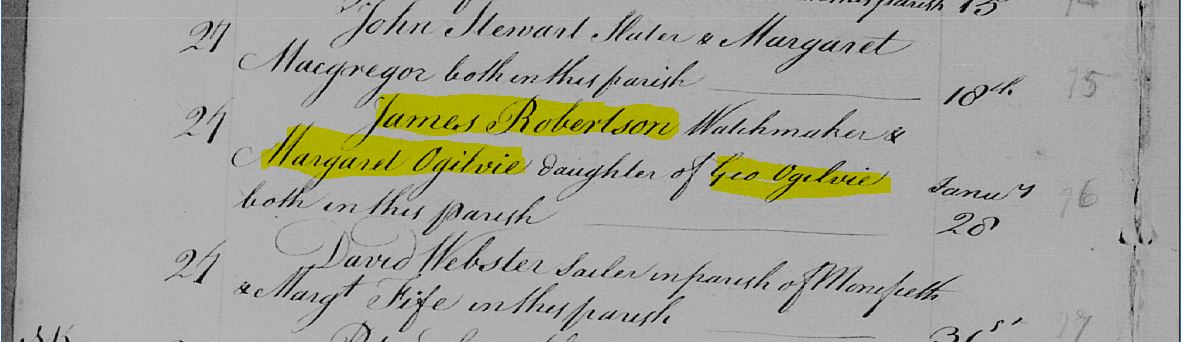 parish 15
27 John Stewart Slater & Margaret
Macgregor both in this parish 18th 75
24 James Robertson Watchmaker &
Margaret Ogilvie daughter of Geo Ogilvie Janu y
both in this parish 28 76
24 David Webster Sailer in parish of Monifieth
& Margt Fife in this parish 31st 77